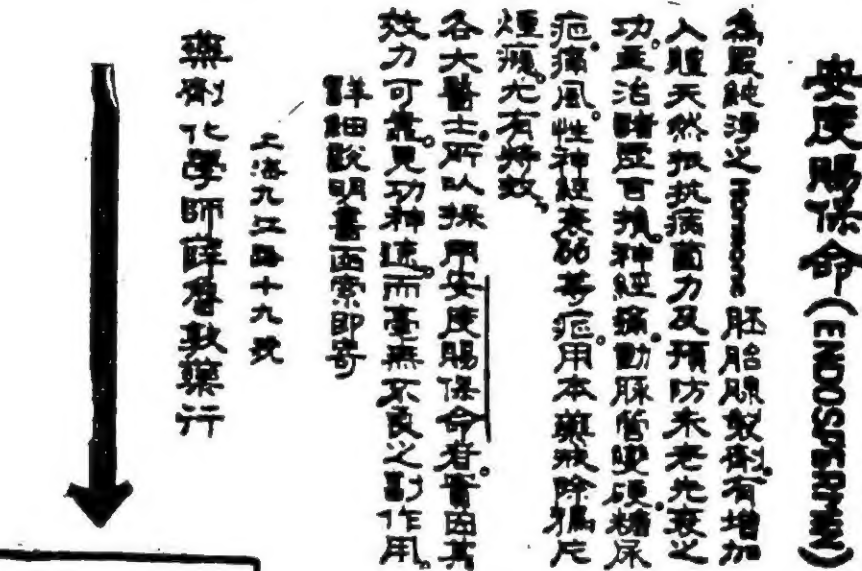 安度賜保命(ENDOSPERMIN)
為最純淨之Hormone 胚胎腺製劑。有增加
人體天然抵抗病菌力及預防未老先衰之
功。主治諸虛百損。神經痛。動脈管變硬。糖尿
症。痛風。性神經衰弱等症。用本藥戒除鴉片
煙癮。尤有特效。
各大醫士。所以採用安度賜保命者。實因其
效力可靠。見功神速。而毫無不良之副作用。
詳細說明書函索即寄
上海九江路十九號
藥劑化學師薛魯敦藥行